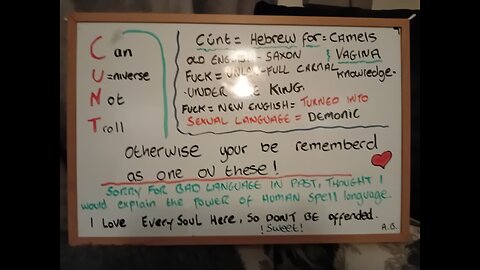 Can
U=niverse
Not
Troll
Cunt = Hebrew for = Camels
Old English - Saxon & Vagina
Fuck = Full Carnal
knowledge-
-Under King.
Fuck = New English = Turned into
Sexual Language = Demonic
Otherwise your be rememberd
as one ov these!
Sorry for bad language in past, thought I
would explain the power of human spell language.
I Love Every Soul Here, So Dont be offended.
!Sweet!
A.B.